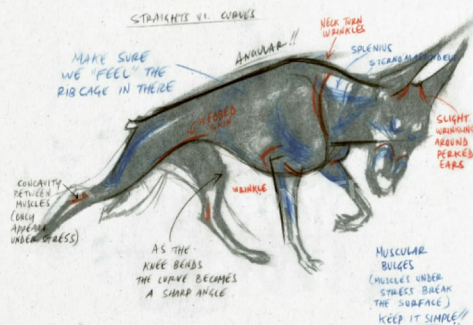 STRAIGHTS VS. CURVES
MAKE SURE
WE "FEEL" THE
RIBCAGE IN THERE
ANGULAR!!
NECK TURN
WRINKLES
SPLENIUS
SLIGHT
WRINKLING
AROUND
PERKED
EARS
SKIN
WRINKLE
CONCAVITY
BETWEEN
MUSCLES
(ONLY
APPEARS
UNDER STRESS)
AS THE
KNEE BENDS
THE CURVE BECOMES
A SHARP ANGLE.
MUSCULAR
BULGES
(MUSCLES UNDER
STRESS BREAK
THE SURFACE)
KEEP IT SIMPLE!!